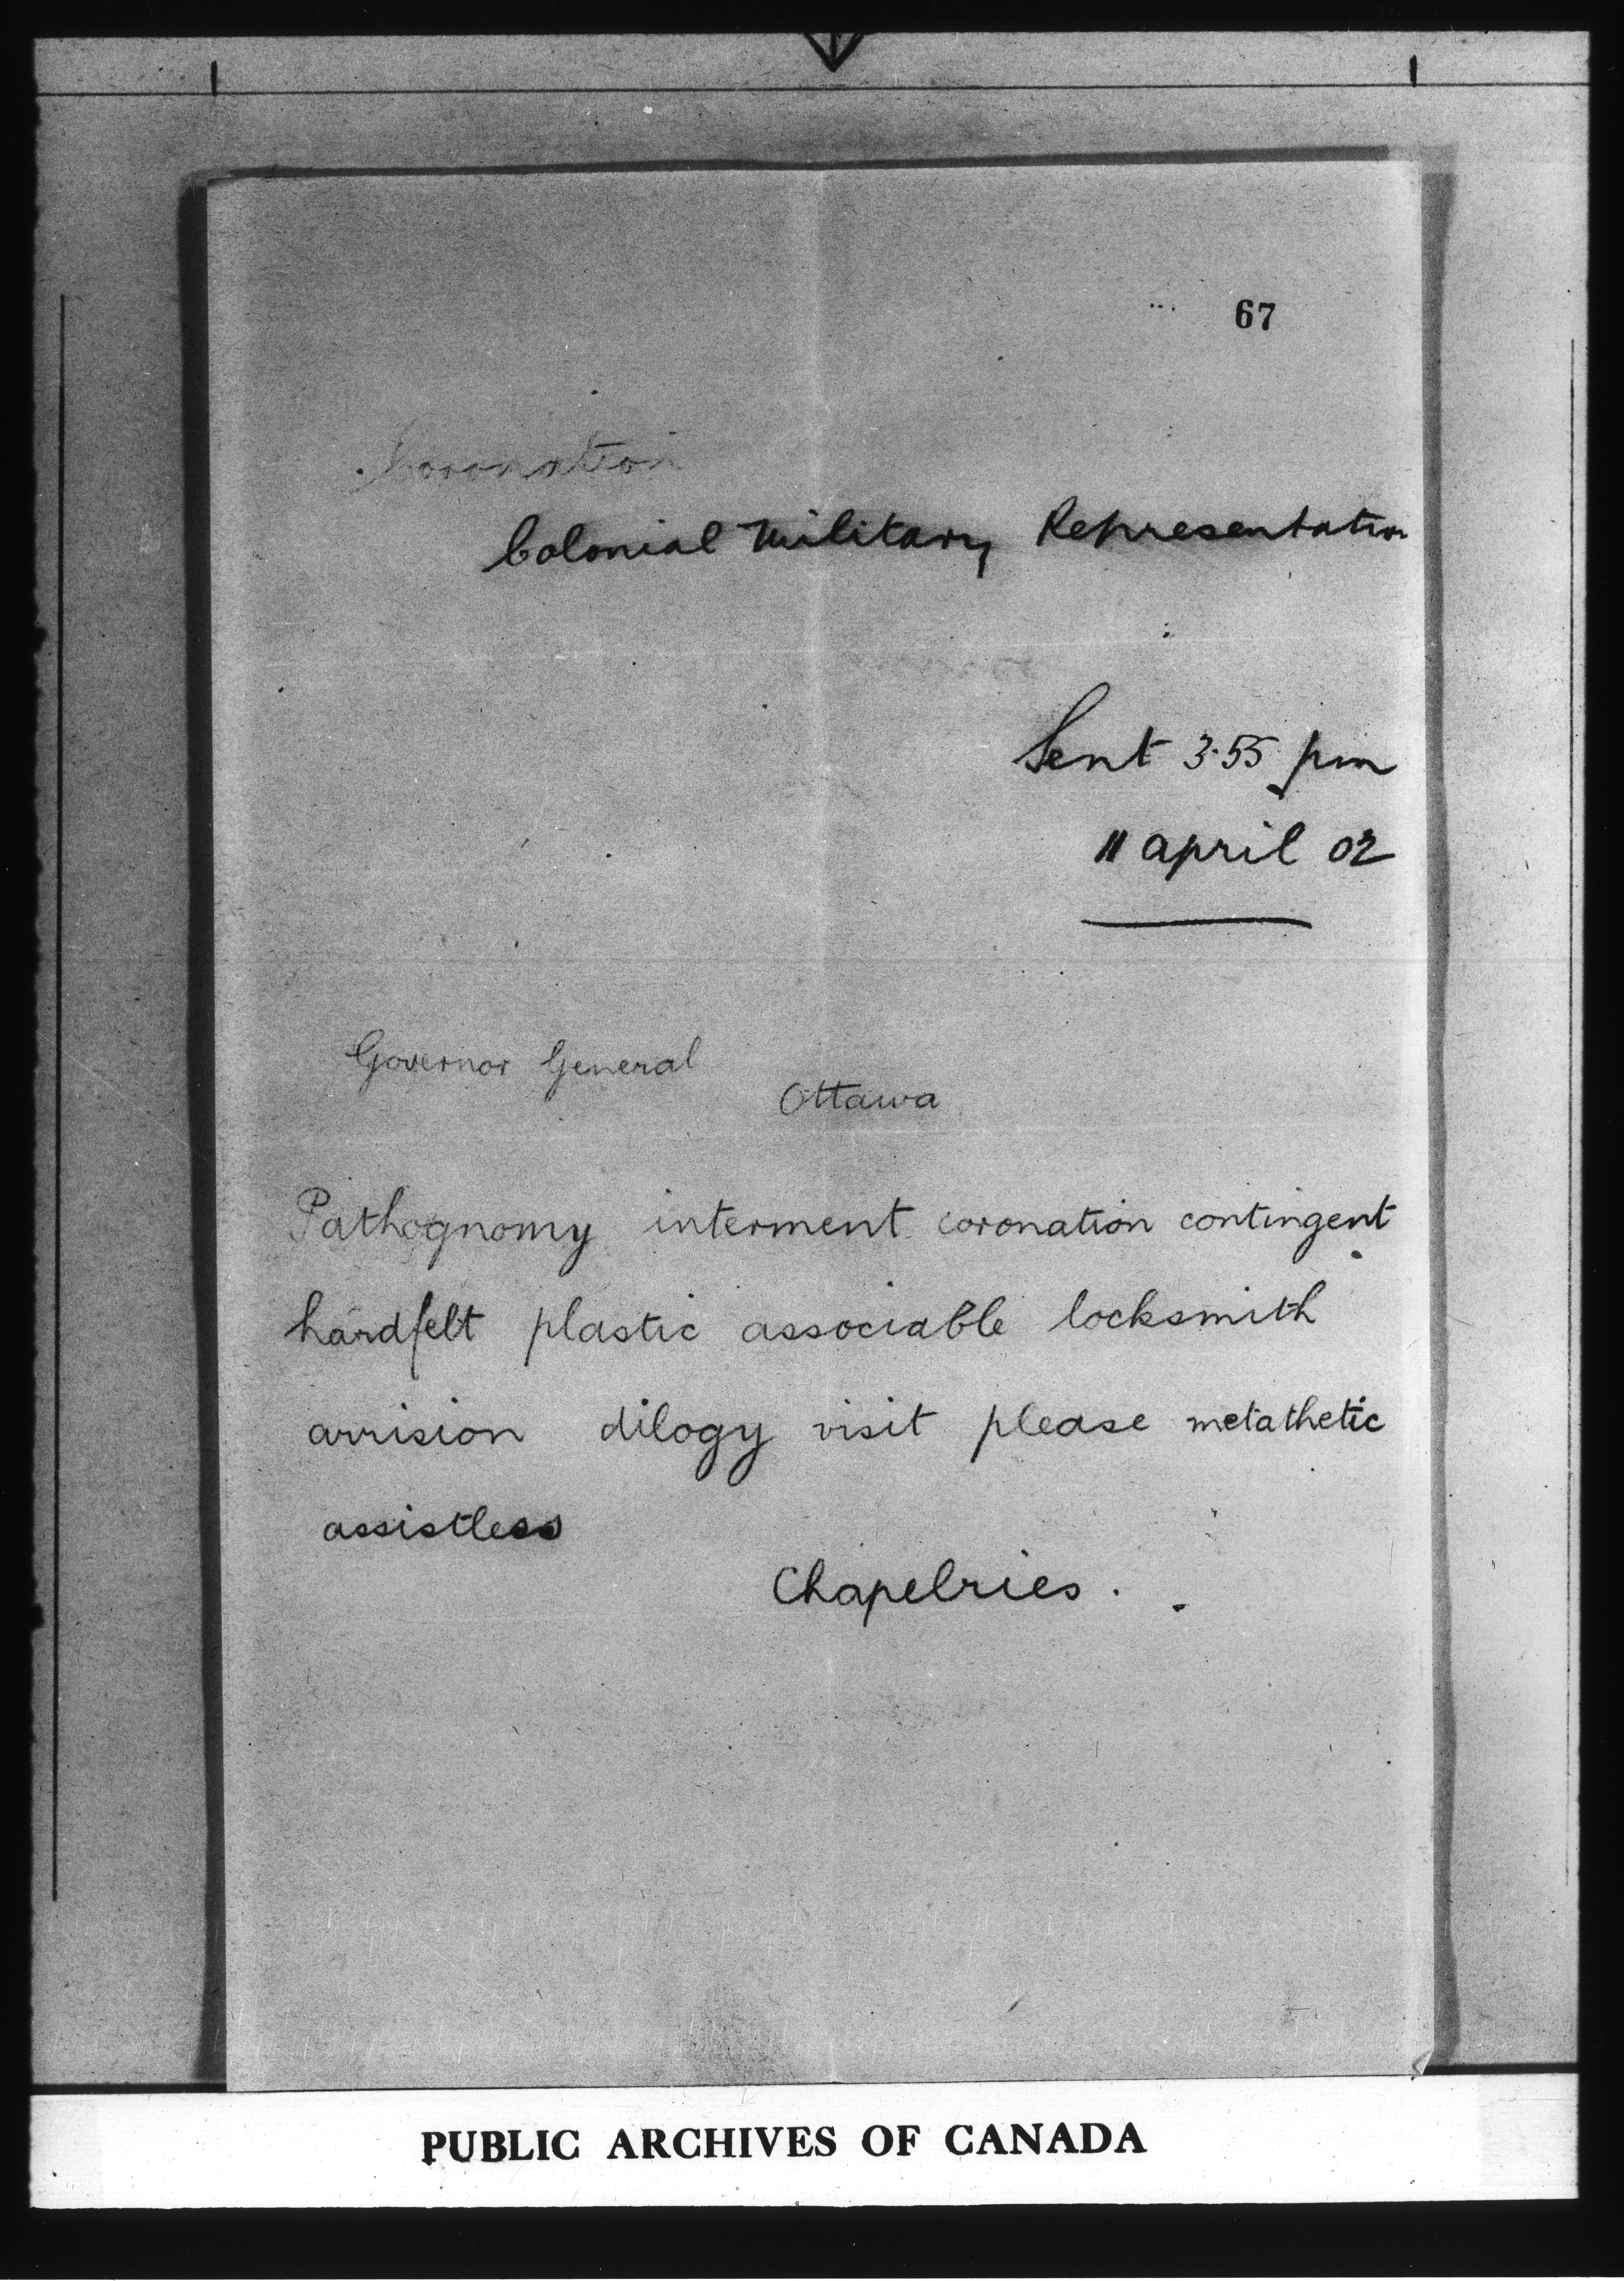 67
Coronation
Colonial Military Representation
Sent 3.55 pm
11 april 02
Governor General
Ottawa
Pathognomy interment coronation contingent
hardfelt plastic associable locksmith
arrision dilogy visit please metathetic
assistless
Chapelries.
PUBLIC ARCHIVES OF CANADA